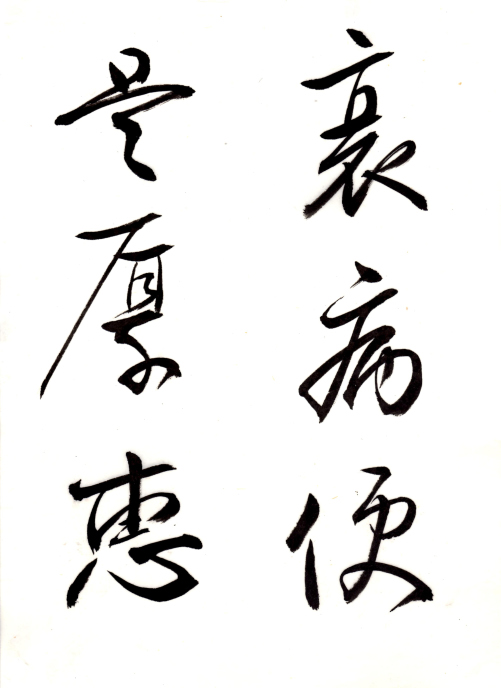 衰病便
是厚惠